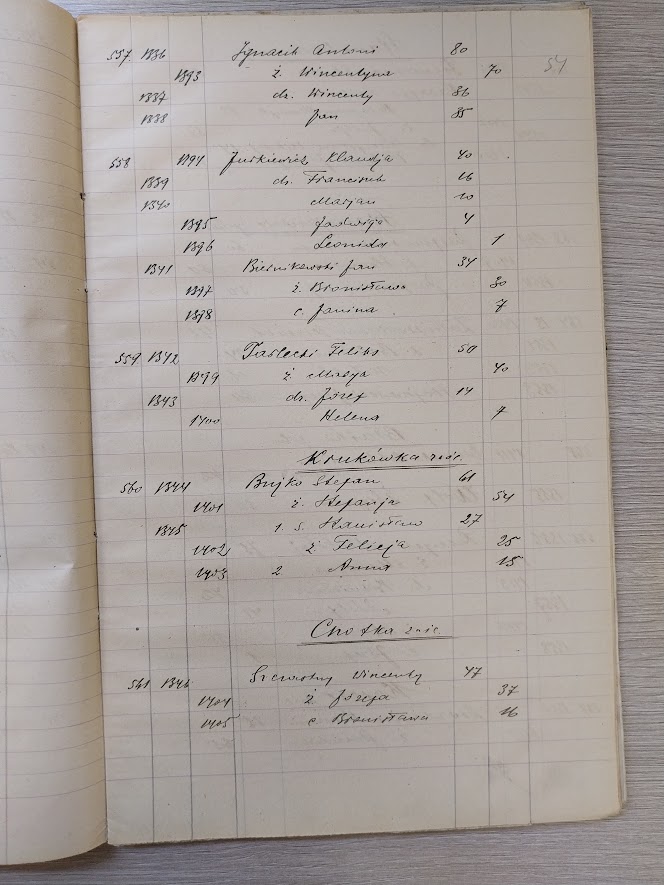 557 1336 Ignacik Antoni 80 54
1393 ż. Wincentyna 70
1337 dz. Wincenty 36
1338 Jan 35
558 1394 Jurkiewicz Klaudja 40
1339 dz. Franciszek 16
1340 Marjan 10
1395 Jadwiga 4
1396 Leonida 1
1341 Biernikowski Jan 34
1397 ż. Bronisława 30
1398 c. Janina 7
559 1342 Feliks 50
1399 ż. Marja 40
1343 dz. Józef 14
1400 Helena 7
Krukówka
560 1344 Bujko Stefan 61
1401 ż. Stefanja 54
1345 1. s. Stanisław 27
1402 ż. Felicja 25
1403 2 Anna 15
561 1346 Szczęsny Wincenty 47
1404 ż. Józefa 37
1405 c. Bronisława 16